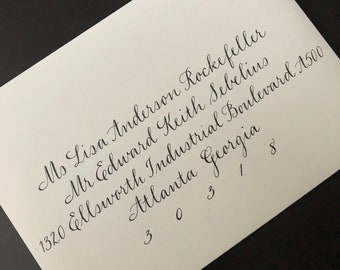 Ms Lisa Anderson Rockefeller
Mr Edward Keith Sebelius
1320 Ellsworth Industrial Boulevard A500
Atlanta Georgia
3 0 3 1 8